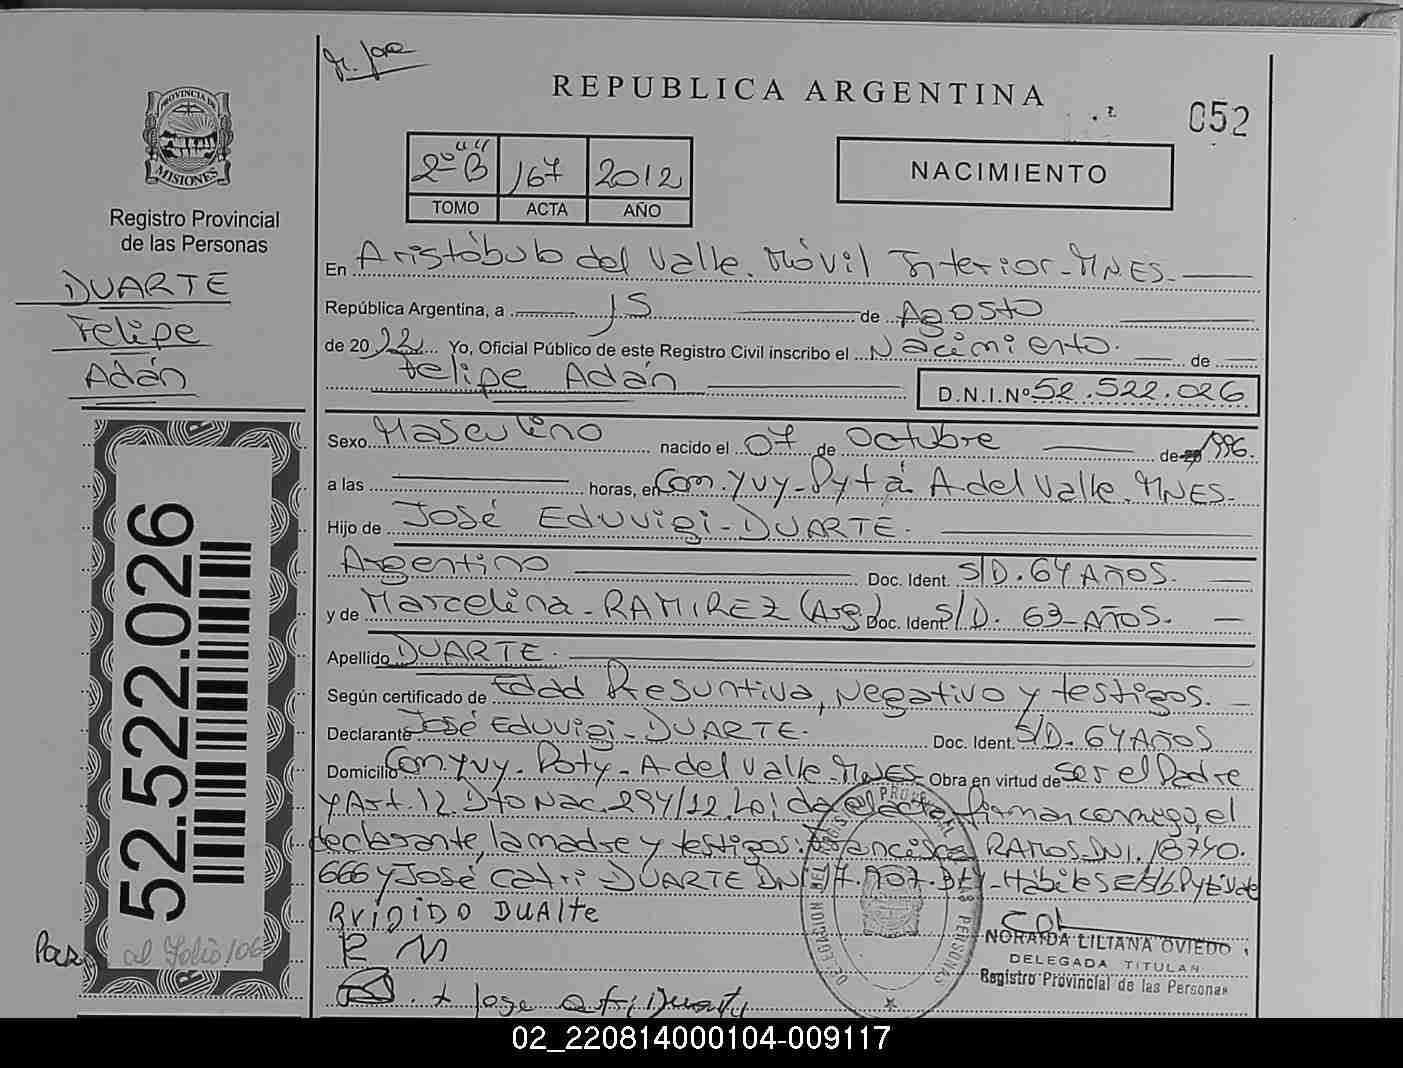 REPUBLICA ARGENTINA
052
PROVINCIA DE
MISIONES
Registro Provincial
de las Personas
DUARTE
Felipe
Adán
2º "B" 167 2012
TOMO ACTA AÑO
NACIMIENTO
En Aristóbulo del Valle. Móvil Interior-MNES.
República Argentina, a 15 de Agosto
de 20 12 Yo, Oficial Público de este Registro Civil inscribo el Nacimiento. de
Felipe Adán D.N.I.Nº 52.522.026
Sexo Masculino nacido el 07 de Octubre de 1996.
a las horas, en Com. Yvy-Pytá A del Valle. MNES.
Hijo de José Eduvigi-DUARTE.
Argentino Doc. Ident. S/D. 64 AÑOS.
y de Marcelina-RAMIREZ (Arg) Doc. Ident. S/D. 63-AÑOS.
Apellido DUARTE.
Según certificado de Edad Presuntiva, Negativo y testigos.
Declarante José Eduvigi-DUARTE. Doc. Ident. S/D-64 AÑOS
Domicilio Com Yvy-Poty-A del Valle-MNES. Obra en virtud de ser el Padre
y Art. 12. Dto Nac. 294/12. Leída el acta firman conmigo, el
declarante, la madre y testigos: RAMOS DNI. 18740.
666 y José DUARTE DNI
BRIGIDO DUARTE
R M
Jose Duarte
52.522.026
Pas. al Folio 106
DELEGACION DEL REGISTRO PROVINCIAL DE LAS PERSONAS
NORAIDA LILIANA OVIEDO
DELEGADA TITULAR
Registro Provincial de las Personas
02_220814000104-009117